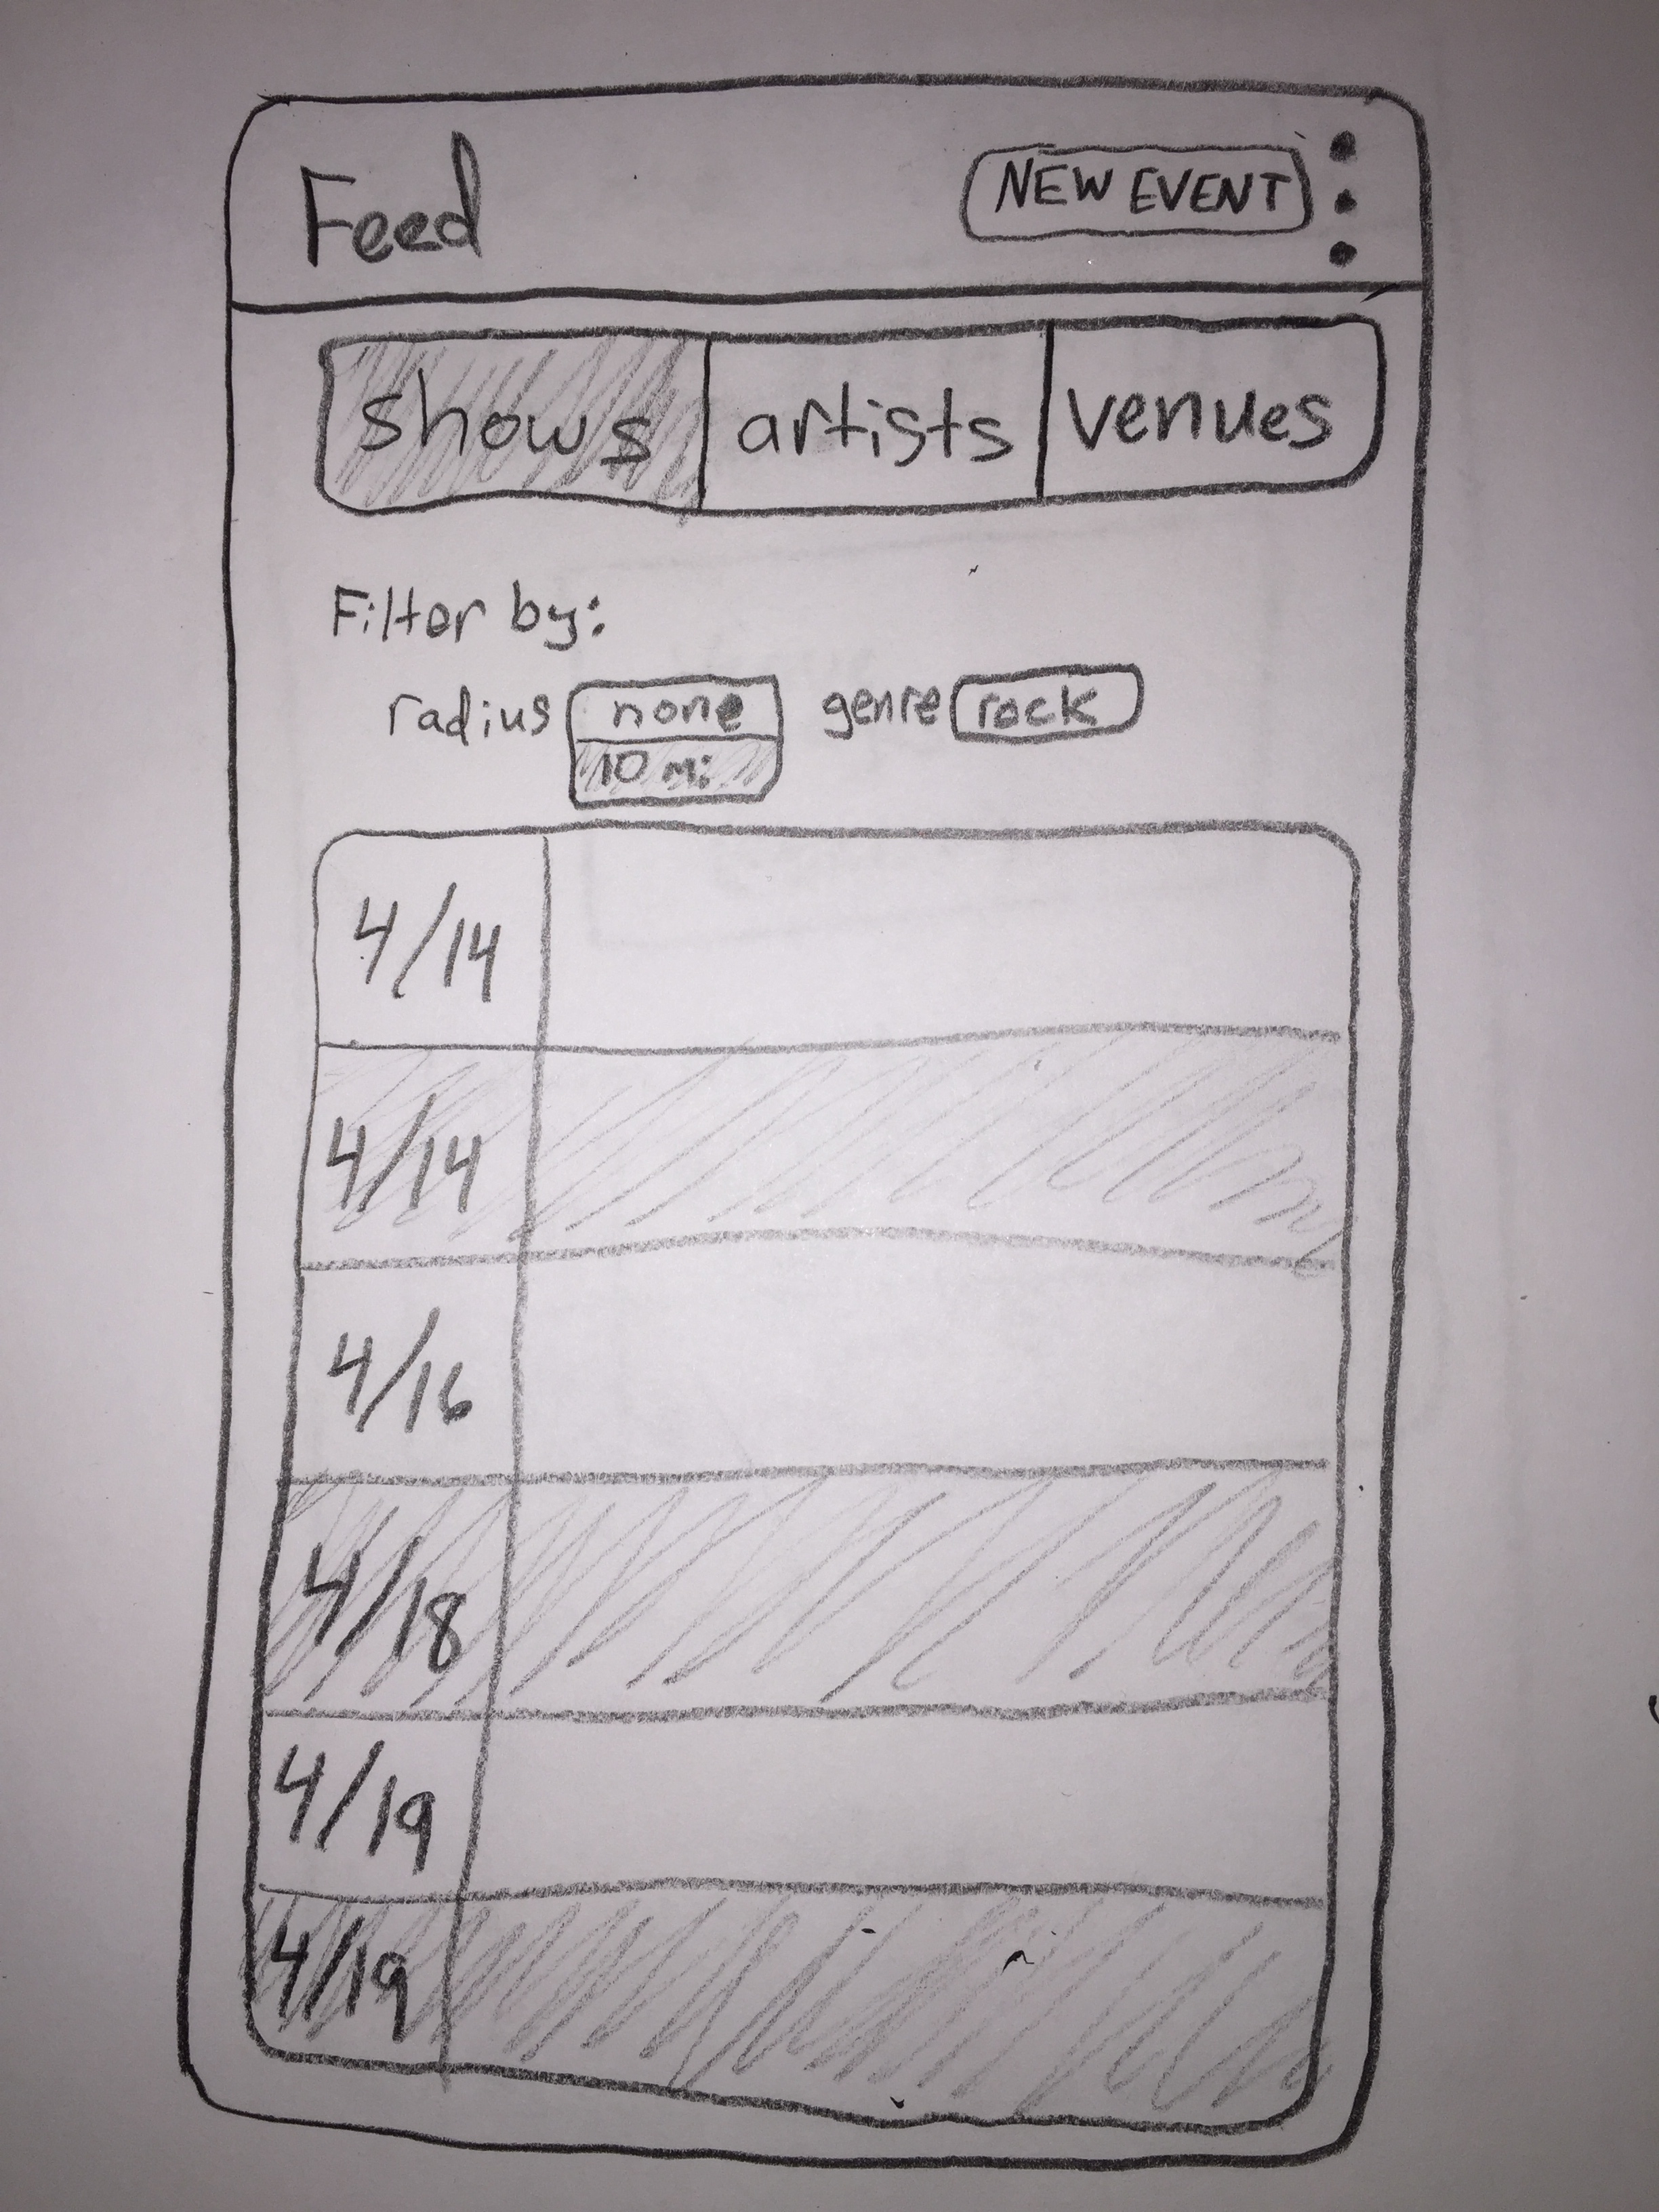 Feed NEW EVENT
shows artists venues
Filter by:
radius none genre rock
10 mi
4/14
4/14
4/16
4/18
4/19
4/19